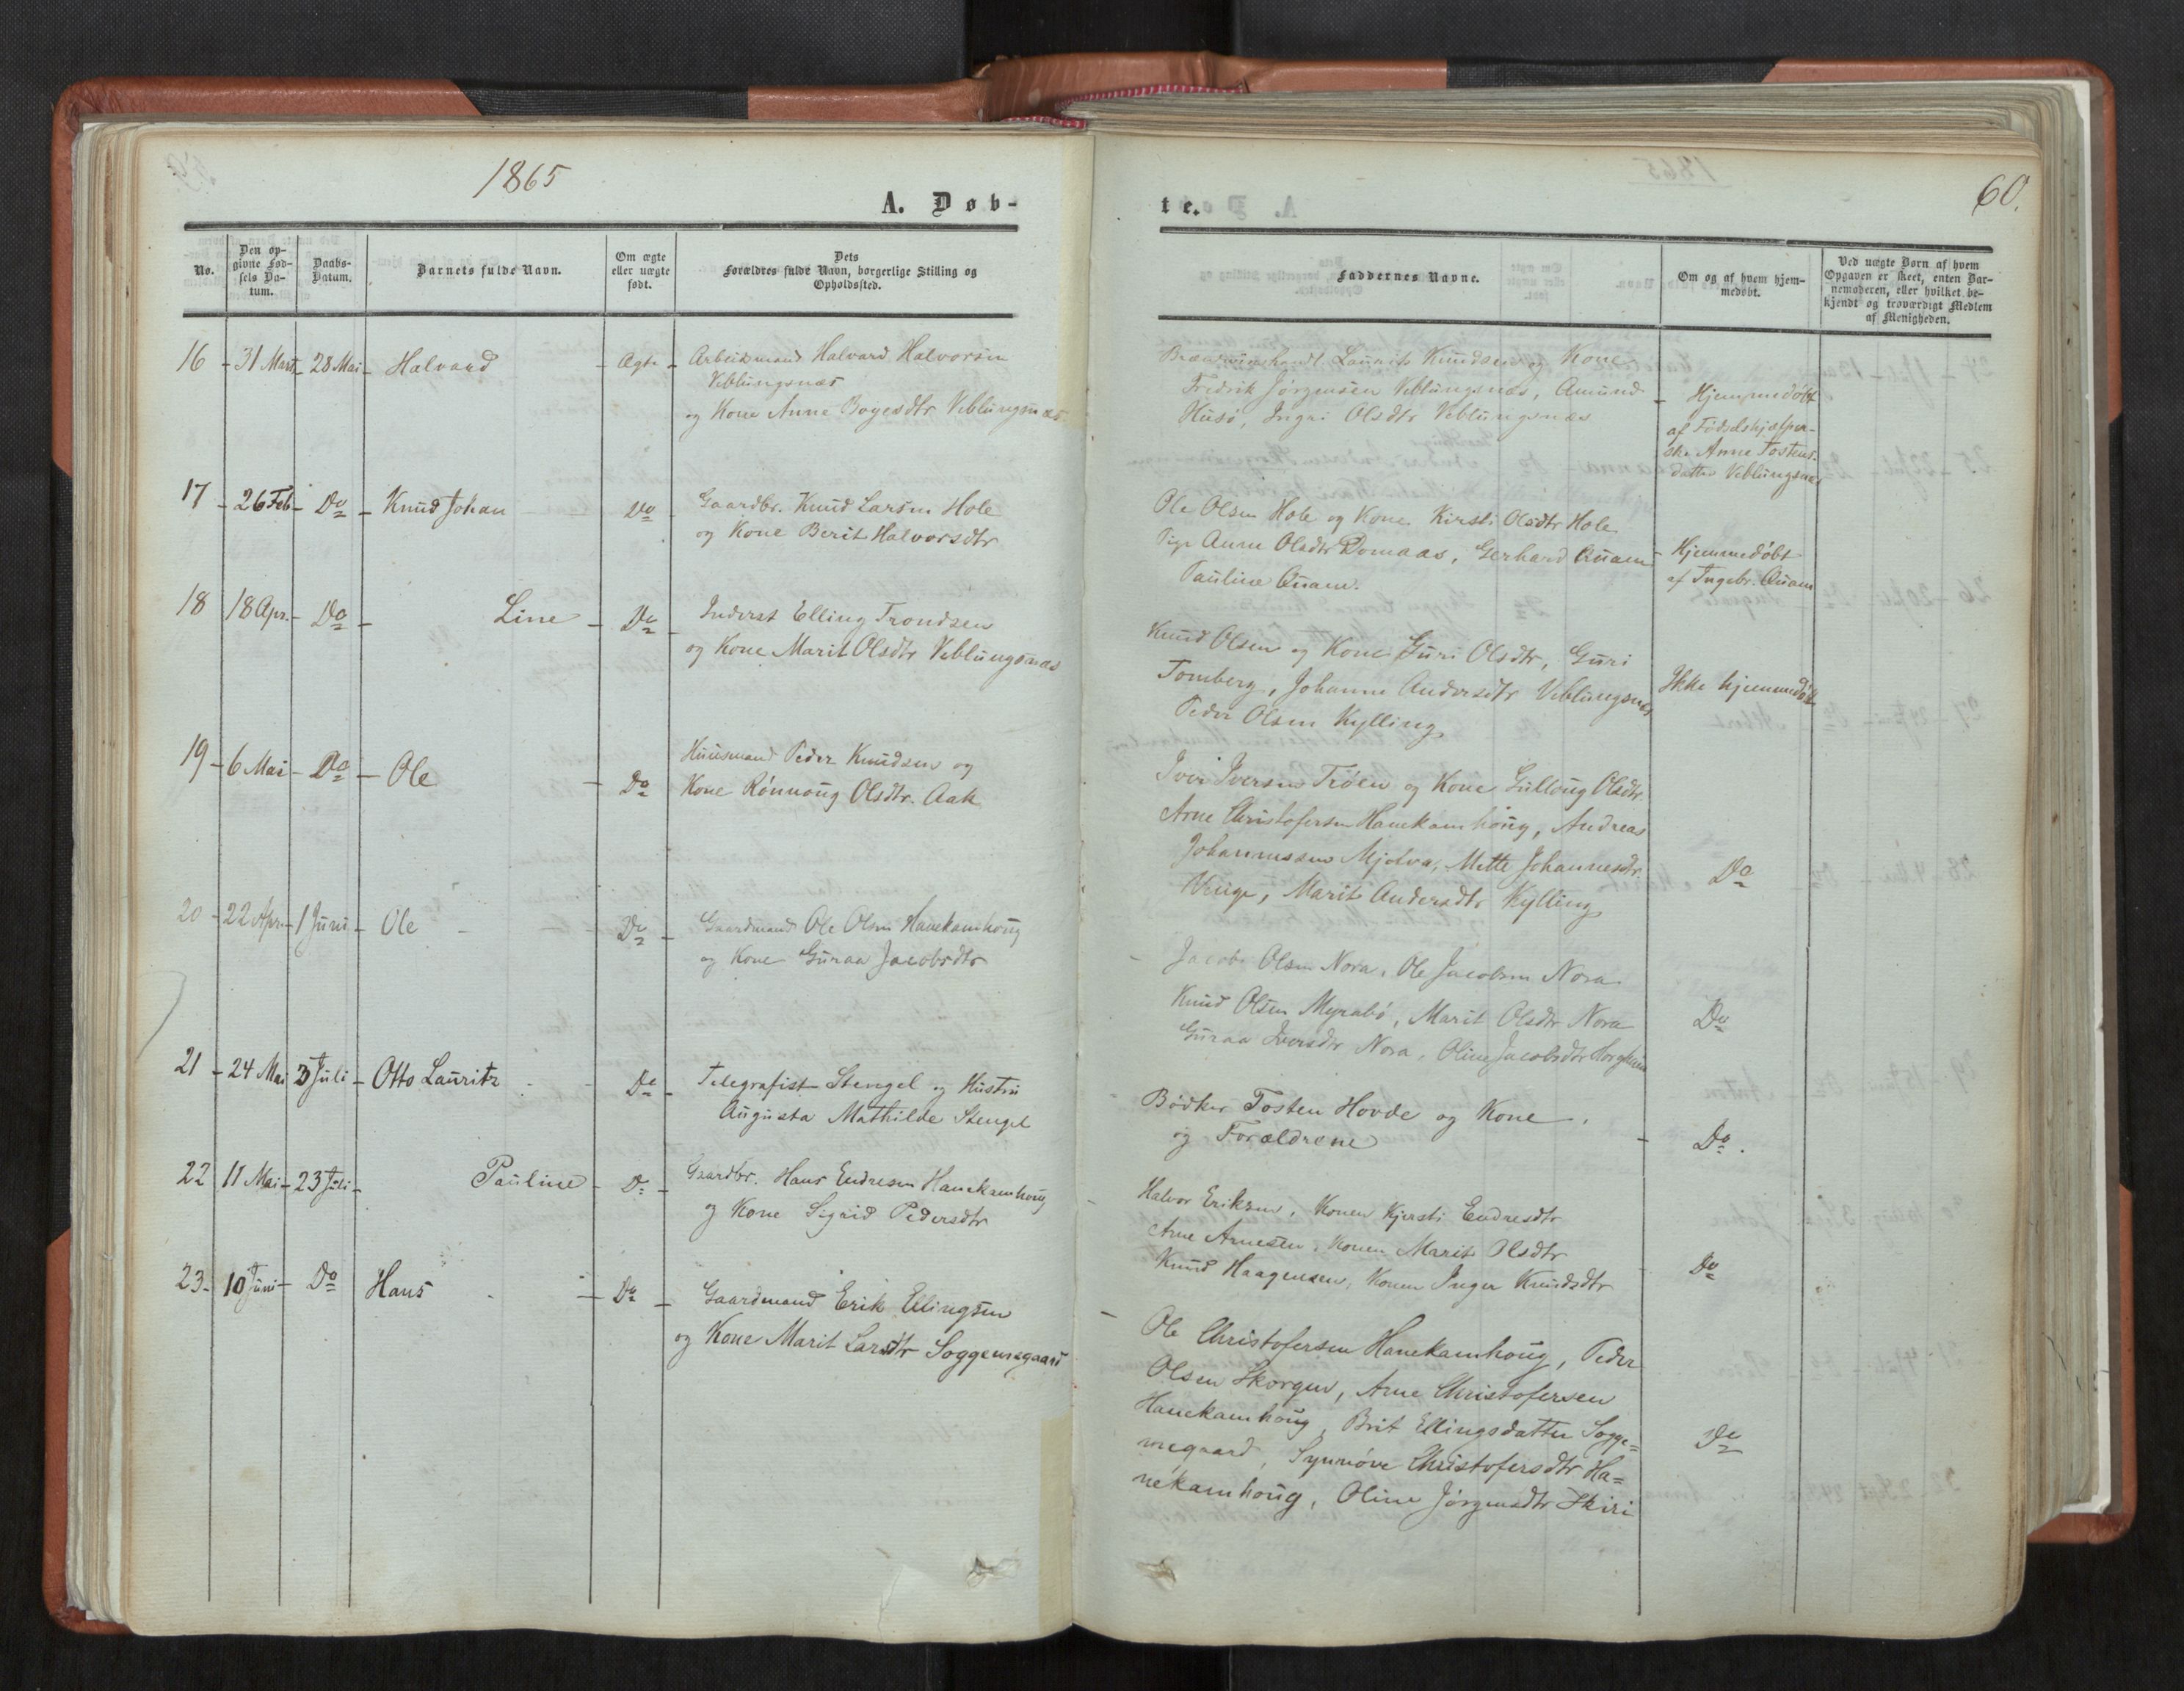 1865
A. Døb-
No.
Den op-
givne Fød-
sels Da-
tum.
Daabs-
Datum.
Barnets fulde Navn.
Om ægte
eller uægte
født.
Dets
Forældres fulde Navn, borgerlige Stilling og
Opholdssted.
16 - 31 Marts - 28 Mai - Halvard - Ægte - Arbeidsmand Halvard Halvorsen
Veblungsnæs
og Kone Anne Boyesdtr Veblungsnæs
17 - 26 Feb - Do - Knud Johan Do Gaardbr. Knud Larsen Hole
og Kone Berit Halvorsdtr
18 18 Apr. - Do - Line - Do - Inderst Elling Trondsen
og Kone Marit Olsdtr Veblungsnæs
19 - 6 Mai - Do - Ole - Do Huusmand Peder Knudsen og
Kone Rønnoug Olsdtr. Aak
20 - 22 Apr. - 1 Juni - Ole - Do - Gaardmand Ole Olsen Hanekamhoug
og Kone Guraa Jacobsdtr
21 - 24 Mai 3 Juli - Otto Lauritz - Do - Telegrafist Stengel og Hustru
Augusta Mathilde Stengel
22 11 Mai - 23 Juli - Pauline - Do - Gaardbr. Hans Endresen Hanekamhoug
og Kone Sigrid Pedersdtr
23 - 10 Juni - Do Hans - Do - Gaardmand Erik Ellingsen
og Kone Marit Larsdtr Soggemsgaard
te.
60.
Faddernes Navne.
Om og af hvem hjem-
medøbt.
Ved uægte Børn af hvem
Opgaven er skeet, enten Bar-
nemoderen, eller hvilket be-
kjendt og troværdigt Medlem
af Menigheden.
Laurits Knudsen og Kone
Fredrik Jørgensen Veblungsnæs, Amund
Husø, Ingri Olsdtr Veblungsnæs
- Hjemmedøbt
af Fødselshjælper-
ske Anne Tostens-
datter Veblungsnæs
Ole Olsen Hole og Kone Kirsti Olsdtr Hole
Pige Anne Olsdtr Domaas, Gerhard Quam
Pauline Quam.
- Hjemmedøbt
af Ingebr. Quam
Knud Olsen og Kone Guri Olsdtr, Guri
Tomberg, Johanne Andersdtr Veblungsnæs
Peder Olsen Kylling
Ikke hjemmedøbt
Iver Iversen Trøen og Kone Gulloug Olsdtr.
Arne Christofersen Hanekamhoug, Andreas
Johannessen Mjølva, Mette Johannesdtr.
Venge, Marit Andersdtr Kylling
Do
- Jacob Olsen Nora, Ole Jacobsen Nora
Knud Olsen Myrabø, Marit Olsdtr Nora
Guraa Iversdtr Nora, Oline Jacobsdtr
Do
Bødker Tosten Hovde og Kone,
og Forældrene
- Do.
- Halvor Eriksen, Konen Kjersti Endresdtr
Arne Arnesen, Konen Marit Olsdtr
Knud Haagensen, Konen Inger Knudsdtr
Do
- Ole Christofersen Hanekamhoug, Peder
Olsen Skorgen, Arne Christofersen
Hanekamhoug, Brit Ellingsdatter Sogge=
msgaard, Synnøve Christofersdtr Ha=
nekamhoug, Oline Jørgensdtr Skiri
Do